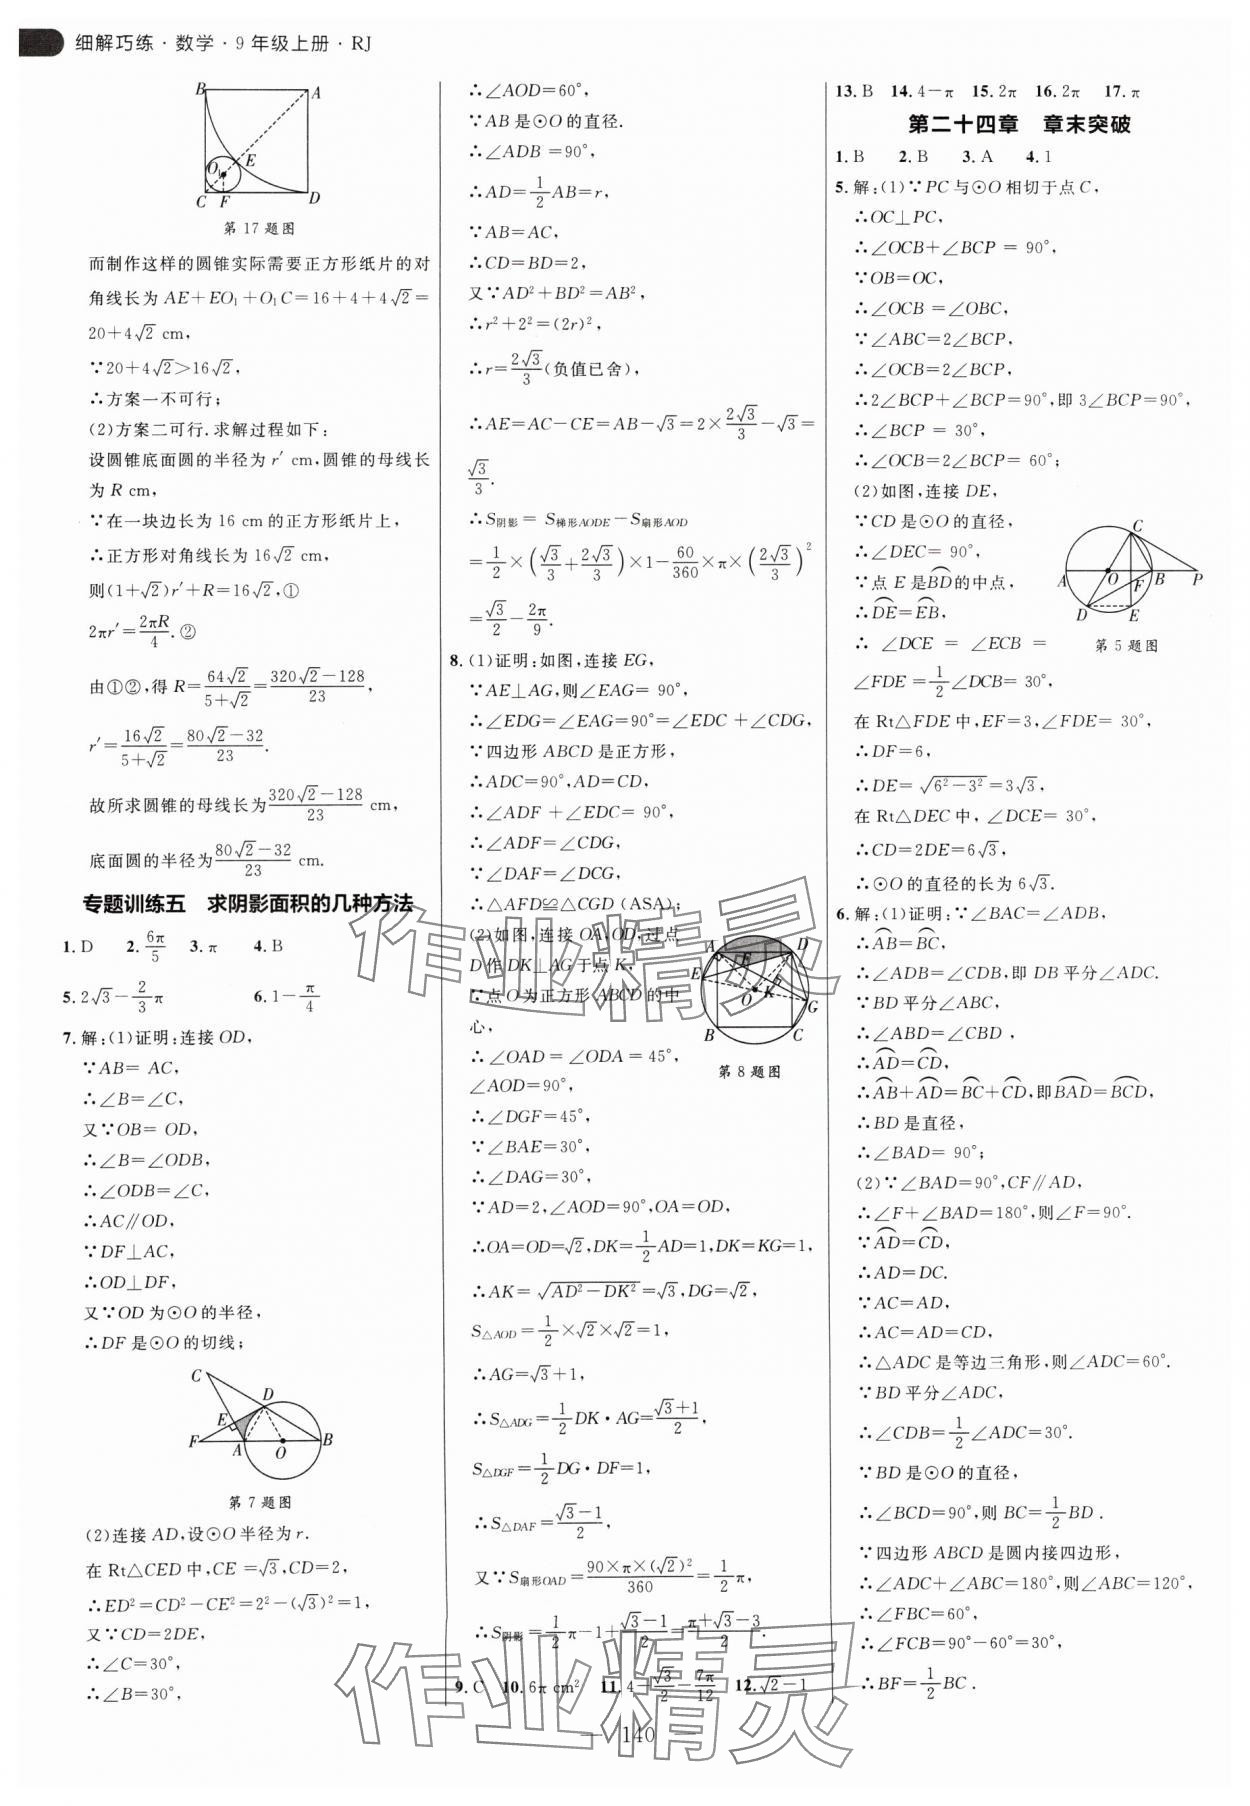 细解巧练·数学·9年级上册·RJ
B A
O₁ E
C F D
第17题图
而制作这样的圆锥实际需要正方形纸片的对
角线长为AE+EO₁+O₁C=16+4+4√2=
20+4√2 cm,
∵20+4√2>16√2,
∴方案一不可行;
(2)方案二可行.求解过程如下:
设圆锥底面圆的半径为r′ cm,圆锥的母线长
为R cm,
∵在一块边长为16 cm的正方形纸片上,
∴正方形对角线长为16√2 cm,
则(1+√2)r′+R=16√2,①
2πr′=2πR/4.②
由①②,得R=64√2/(5+√2)=(320√2-128)/23,
r′=16√2/(5+√2)=(80√2-32)/23.
故所求圆锥的母线长为(320√2-128)/23 cm,
底面圆的半径为(80√2-32)/23 cm.
专题训练五 求阴影面积的几种方法
1.D 2.6π/5 3.π 4.B
5.2√3-2/3π 6.1-π/4
7.解:(1)证明:连接OD,
∵AB=AC,
∴∠B=∠C,
又∵OB=OD,
∴∠B=∠ODB,
∴∠ODB=∠C,
∴AC∥OD,
∵DF⊥AC,
∴OD⊥DF,
又∵OD为⊙O的半径,
∴DF是⊙O的切线;
C D E F A O B
第7题图
(2)连接AD,设⊙O半径为r.
在Rt△CED中,CE=√3,CD=2,
∴ED²=CD²-CE²=2²-(√3)²=1,
又∵CD=2DE,
∴∠C=30°,
∴∠B=30°,
∴∠AOD=60°,
∵AB是⊙O的直径.
∴∠ADB=90°,
∴AD=1/2AB=r,
∵AB=AC,
∴CD=BD=2,
又∵AD²+BD²=AB²,
∴r²+2²=(2r)²,
∴r=2√3/3(负值已舍),
∴AE=AC-CE=AB-√3=2×2√3/3-√3=
√3/3.
∴S阴影=S梯形AODE-S扇形AOD
=1/2×(√3/3+2√3/3)×1-60/360×π×(2√3/3)²
=√3/2-2π/9.
8.(1)证明:如图,连接EG,
∵AE⊥AG,则∠EAG=90°,
∴∠EDG=∠EAG=90°=∠EDC+∠CDG,
∵四边形ABCD是正方形,
∴ADC=90°,AD=CD,
∴∠ADF+∠EDC=90°,
∴∠ADF=∠CDG,
∵∠DAF=∠DCG,
∴△AFD≌△CGD(ASA);
(2)如图,连接OA,OD,过点
D作DK⊥AG于点K,
∵点O为正方形ABCD的中
心,
∴∠OAD=∠ODA=45°,
∠AOD=90°,
∴∠DGF=45°,
∵∠BAE=30°,
∴∠DAG=30°,
A D F E O K G B C
第8题图
∵AD=2,∠AOD=90°,OA=OD,
∴OA=OD=√2,DK=1/2AD=1,DK=KG=1,
∴AK=√(AD²-DK²)=√3,DG=√2,
S△AOD=1/2×√2×√2=1,
∴AG=√3+1,
∴S△ADG=1/2DK·AG=(√3+1)/2,
S△DGF=1/2DG·DF=1,
∴S△DAF=(√3-1)/2,
又∵S扇形OAD=90×π×(√2)²/360=1/2π,
∴S阴影=1/2π-1+(√3-1)/2=(π+√3-3)/2.
9.C 10.6π cm² 11.4-√3/2-7π/12 12.√2-1
13.B 14.4-π 15.2π 16.2π 17.π
第二十四章 章末突破
1.B 2.B 3.A 4.1
5.解:(1)∵PC与⊙O相切于点C,
∴OC⊥PC,
∴∠OCB+∠BCP=90°,
∵OB=OC,
∴∠OCB=∠OBC,
∵∠ABC=2∠BCP,
∴∠OCB=2∠BCP,
∴2∠BCP+∠BCP=90°,即3∠BCP=90°,
∴∠BCP=30°,
∴∠OCB=2∠BCP=60°;
(2)如图,连接DE,
∵CD是⊙O的直径,
∴∠DEC=90°,
∵点E是BD的中点,
∴DE=EB,
∴∠DCE=∠ECB=
∠FDE=1/2∠DCB=30°,
C A O B P F D E
第5题图
在Rt△FDE中,EF=3,∠FDE=30°,
∴DF=6,
∴DE=√(6²-3²)=3√3,
在Rt△DEC中,∠DCE=30°,
∴CD=2DE=6√3,
∴⊙O的直径的长为6√3.
6.解:(1)证明:∵∠BAC=∠ADB,
∴AB=BC,
∴∠ADB=∠CDB,即DB平分∠ADC.
∵BD平分∠ABC,
∴∠ABD=∠CBD,
∴AD=CD,
∴AB+AD=BC+CD,即BAD=BCD,
∴BD是直径,
∴∠BAD=90°;
(2)∵∠BAD=90°,CF∥AD,
∴∠F+∠BAD=180°,则∠F=90°.
∵AD=CD,
∴AD=DC.
∵AC=AD,
∴AC=AD=CD,
∴△ADC是等边三角形,则∠ADC=60°.
∵BD平分∠ADC,
∴∠CDB=1/2∠ADC=30°.
∵BD是⊙O的直径,
∴∠BCD=90°,则BC=1/2BD.
∵四边形ABCD是圆内接四边形,
∴∠ADC+∠ABC=180°,则∠ABC=120°,
∴∠FBC=60°,
∴∠FCB=90°-60°=30°,
∴BF=1/2BC.
作业精灵
作业精灵
— 140 —